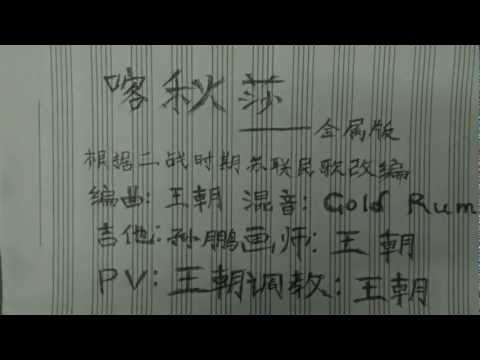 喀秋莎
——金属版
根据二战时期苏联民歌改编
编曲:王朝 混音:Gold Rum
吉他:孙鹏画师:王朝
PV:王朝调教:王朝